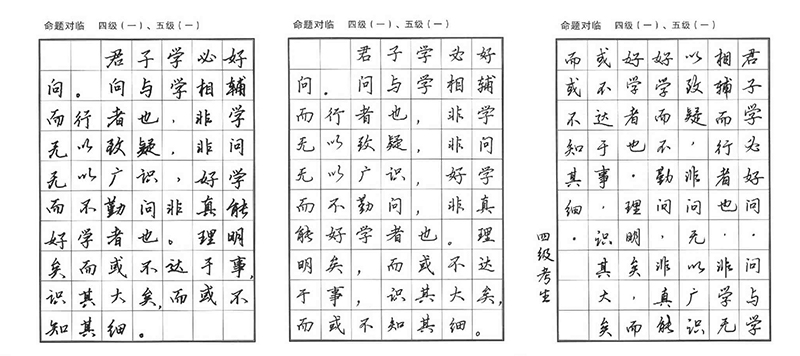 命题对临 四级(一)、五级(一)
君子学必好
问。问与学相辅
而行者也,非学
无以致疑,非问
无以广识,好学
而不勤问非真能
好学者也。理明
矣而或不达于事,
识其大矣,而或不
知其细。
命题对临 四级(一)、五级(一)
君子学必好
问。问与学相辅
而行者也,非学
无以致疑,非问
无以广识,好学
而不勤问,非真
能好学者也。理
明矣,而或不达
于事,识其大矣,
而或不知其细。
命题对临 四级(一)、五级(一)
君子学必好问。问与学
相辅而行者也,非学无
以致疑,非问无以广识
好学而不勤问,非真能
好学者也。理明矣,而
或不达于事,识其大矣
而或不知其细。
四级考生